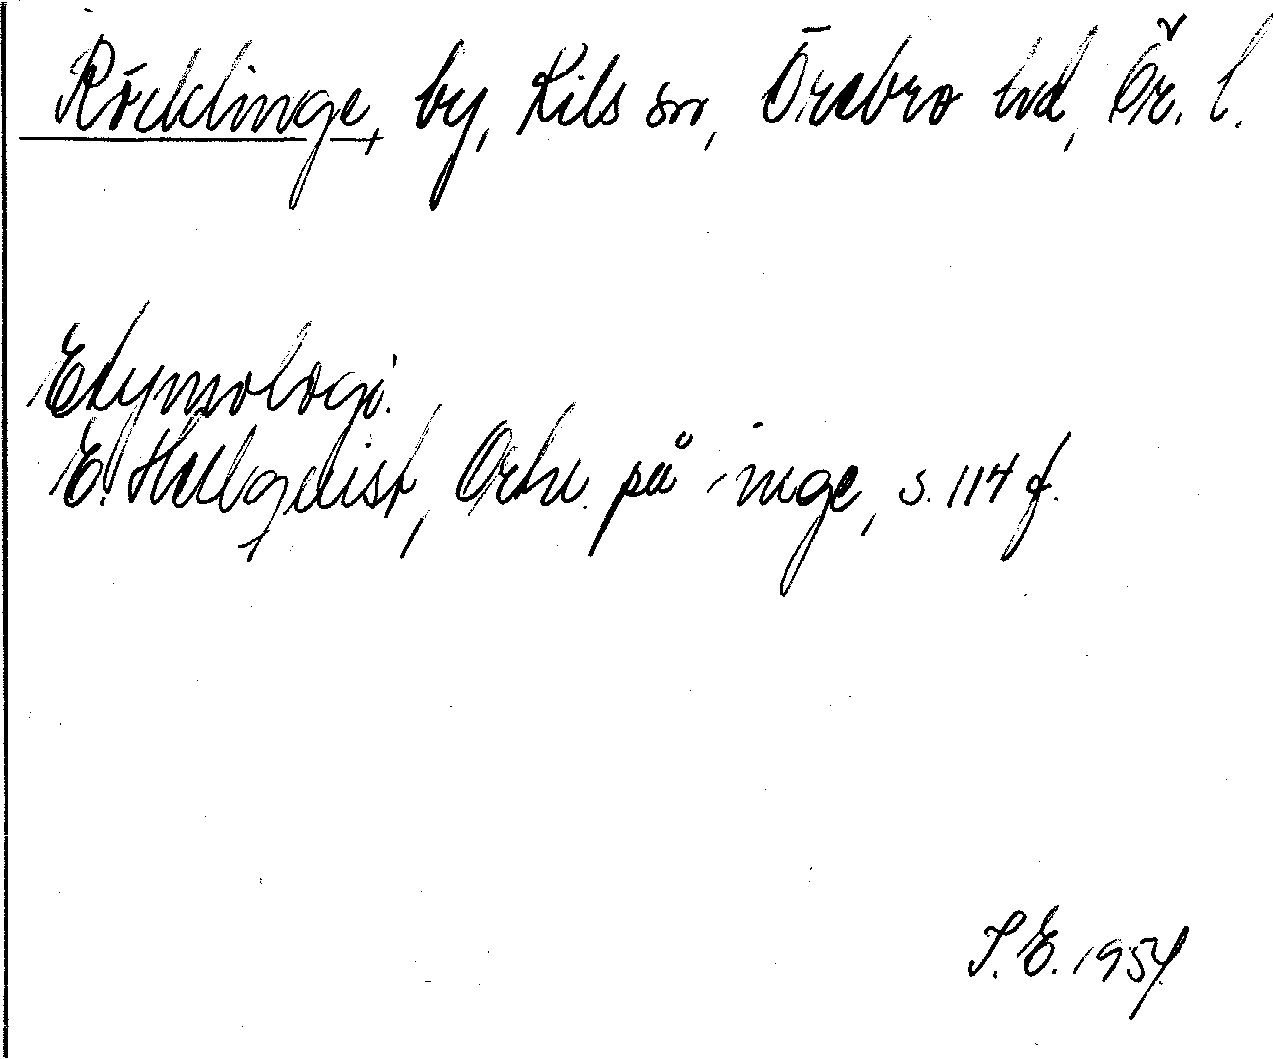 Röcklinge, by, Kils sn, Örebro hd, Ör. l.
Etymologi.
E. Hellquist, Ortn. på -inge, s. 114 f.
S.E. 1954